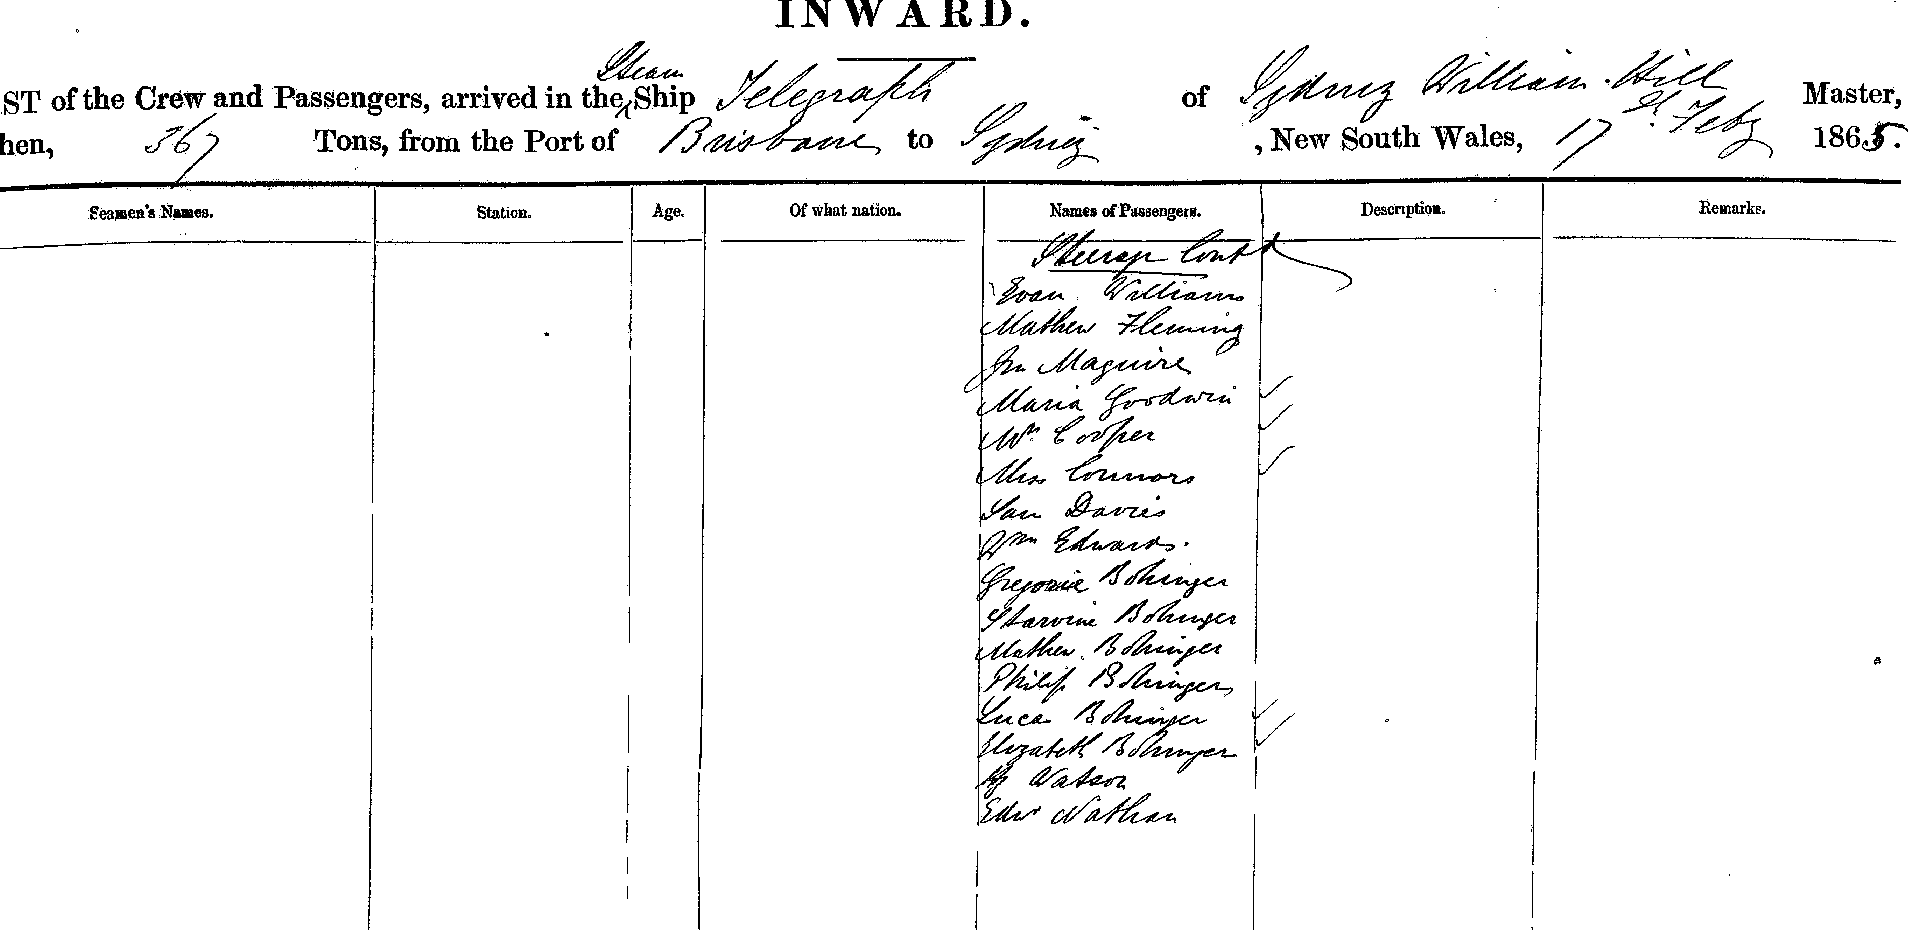 INWARD.
Steam
ST of the Crew and Passengers, arrived in the Ship Telegraph of Sydney William Hill Master,
hen, 367 Tons, from the Port of Brisbane to Sydney, New South Wales, 17th Feby 1865.
Seamen's Names. Station. Age. Of what nation. Names of Passengers. Description. Remarks.
Steerage Contd
Evan Williams
Mathew Fleming
Jn Maguire
Maria Goodwin
Mrs Cooper
Miss Connors
Sam Davies
Wm Edwards.
Gregorie Bohringer
Bohringer
Mathew Bohringer
Philip Bohringer
Luca Bohringer
Elizabeth Bohringer
Hy Watson
Edwd Nathan